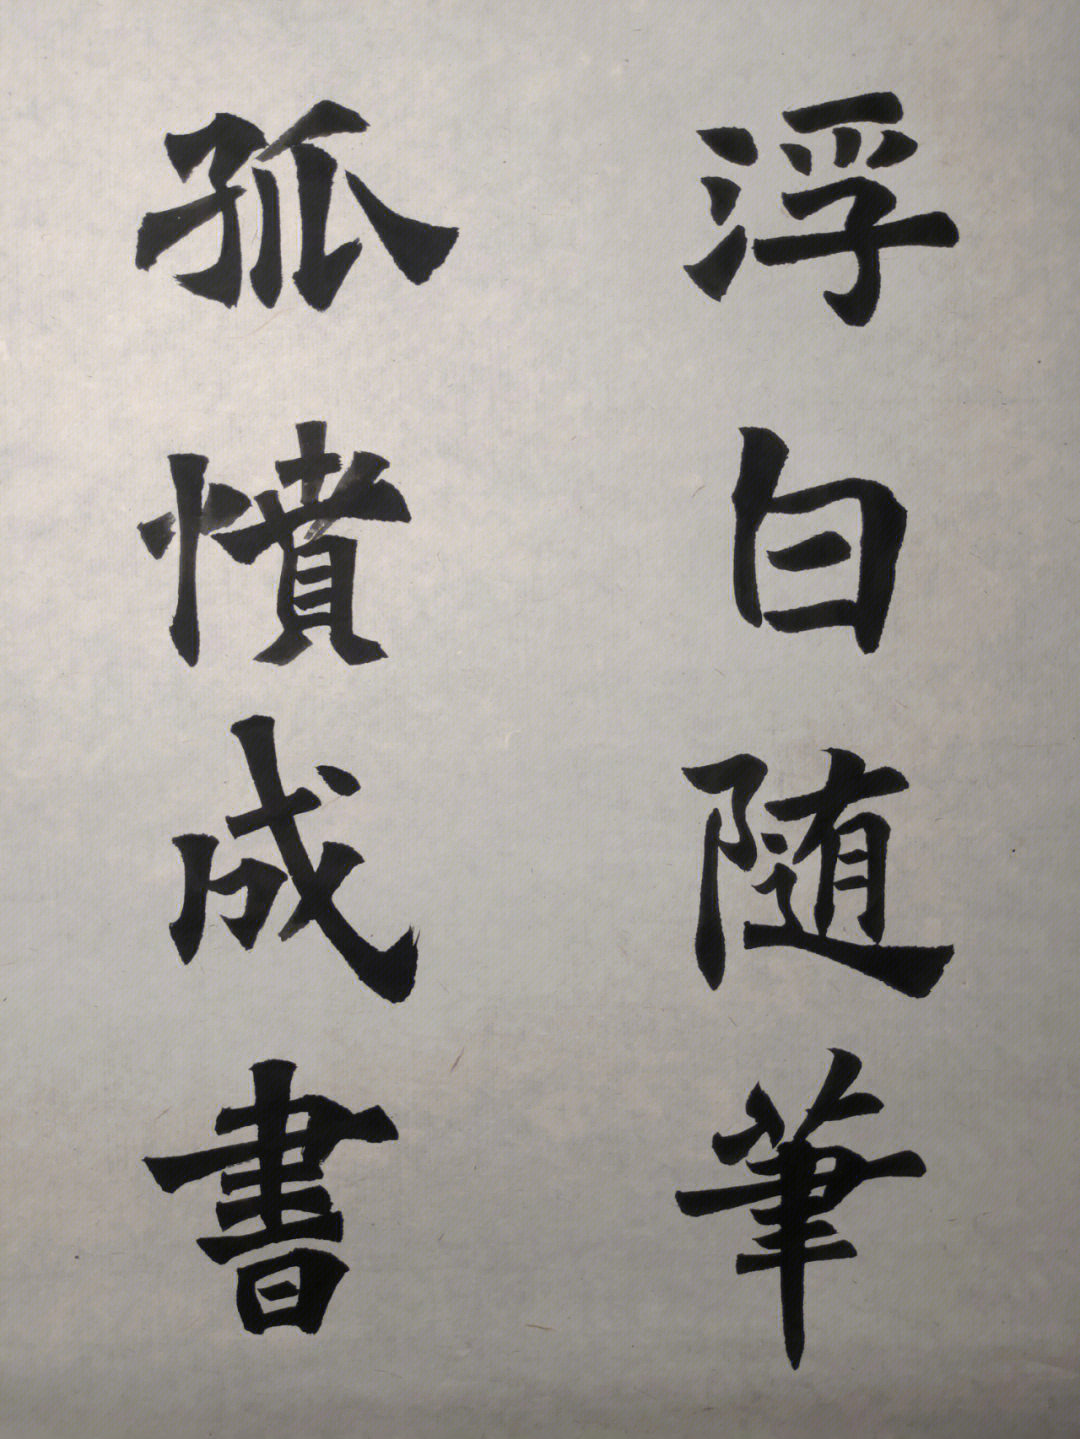 浮白随筆
孤憤成書